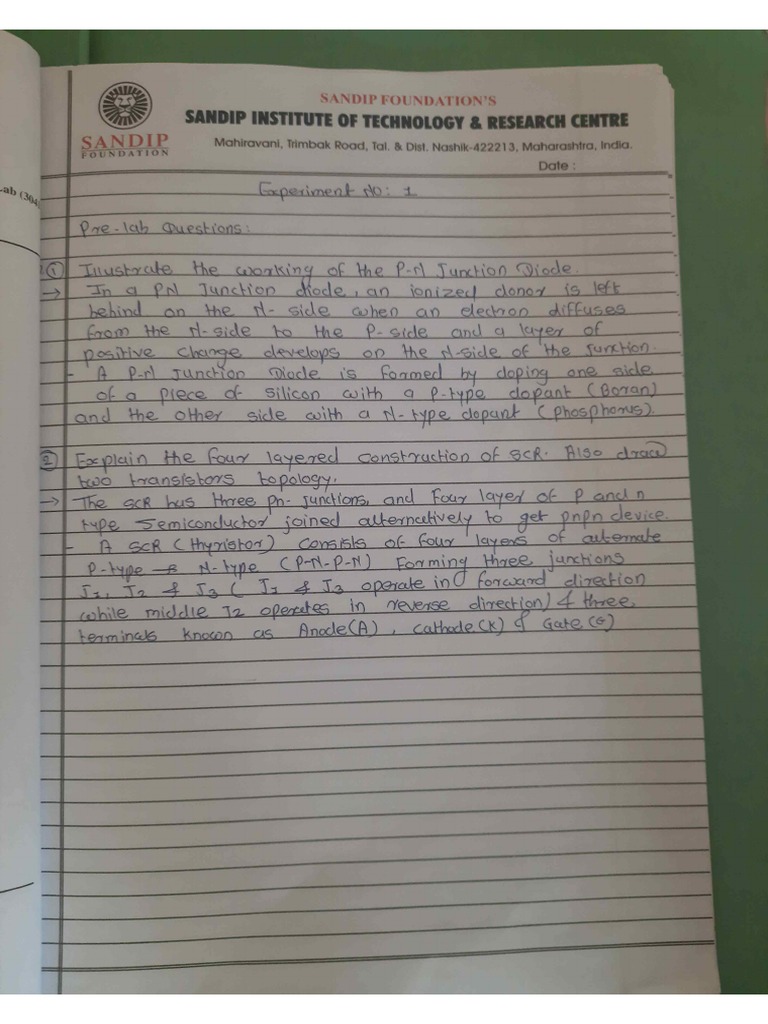 SANDIP FOUNDATION'S
SANDIP INSTITUTE OF TECHNOLOGY & RESEARCH CENTRE
SANDIP
FOUNDATION
Mahiravani, Trimbak Road, Tal. & Dist. Nashik-422213, Maharashtra, India.
Date :
Lab (304
Experiment No: 1
Pre-lab Questions:
① Illustrate the working of the P-N Junction Diode.
→ In a PN Junction diode, an ionized donor is left
behind on the N- side when an electron diffuses
from the N-side to the P-side and a layer of
positive change develops on the N-side of the junction.
- A P-N Junction Diode is formed by doping one side
of a piece of silicon with a P-type dopant (Boran)
and the other side with a N-type dopant (phosphorus).
② Explain the four layered construction of SCR. Also draw
two transistors topology.
→ The SCR has three pn- junctions, and four layer of P and n
type semiconductor joined alternatively to get pnpn device.
- A SCR (thyristor) consists of four layers of alternate
P-type N-type (P-N-P-N) forming three junctions
J1, J2 & J3 ( J1 & J3 operate in forward direction
while middle J2 operates in reverse direction) & three
terminals known as Anode(A), Cathode(K) & Gate (G)